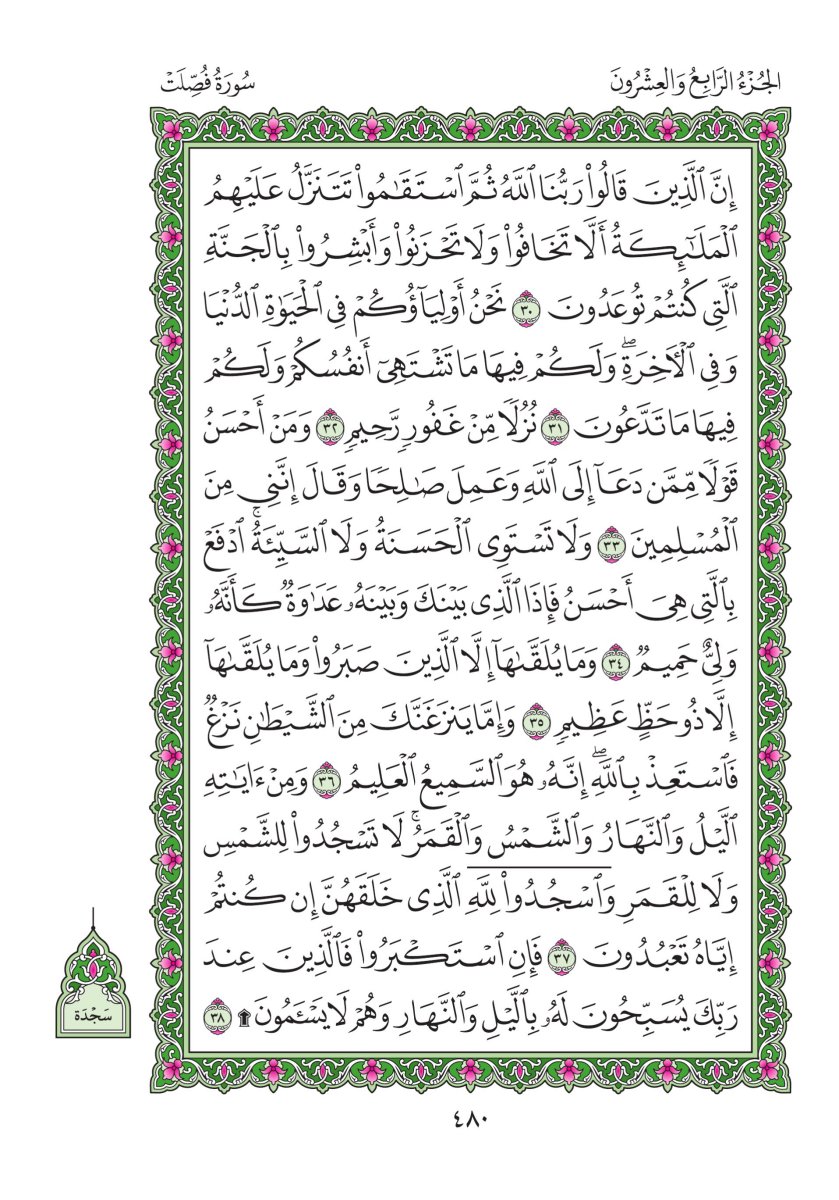 الجُزْءُ الرَّابِعُ وَالعِشْرُونَ
سُورَةُ فُصِّلَتْ
إِنَّ ٱلَّذِينَ قَالُوا۟ رَبُّنَا ٱللَّهُ ثُمَّ ٱسْتَقَـٰمُوا۟ تَتَنَزَّلُ عَلَيْهِمُ
ٱلْمَلَـٰٓئِكَةُ أَلَّا تَخَافُوا۟ وَلَا تَحْزَنُوا۟ وَأَبْشِرُوا۟ بِٱلْجَنَّةِ
ٱلَّتِى كُنتُمْ تُوعَدُونَ ٣٠ نَحْنُ أَوْلِيَآؤُكُمْ فِى ٱلْحَيَوٰةِ ٱلدُّنْيَا
وَفِى ٱلْـَٔاخِرَةِ ۖ وَلَكُمْ فِيهَا مَا تَشْتَهِىٓ أَنفُسُكُمْ وَلَكُمْ
فِيهَا مَا تَدَّعُونَ ٣١ نُزُلًا مِّنْ غَفُورٍ رَّحِيمٍ ٣٢ وَمَنْ أَحْسَنُ
قَوْلًا مِّمَّن دَعَآ إِلَى ٱللَّهِ وَعَمِلَ صَـٰلِحًا وَقَالَ إِنَّنِى مِنَ
ٱلْمُسْلِمِينَ ٣٣ وَلَا تَسْتَوِى ٱلْحَسَنَةُ وَلَا ٱلسَّيِّئَةُ ۚ ٱدْفَعْ
بِٱلَّتِى هِىَ أَحْسَنُ فَإِذَا ٱلَّذِى بَيْنَكَ وَبَيْنَهُۥ عَدَٰوَةٌ كَأَنَّهُۥ
وَلِىٌّ حَمِيمٌ ٣٤ وَمَا يُلَقَّىٰهَآ إِلَّا ٱلَّذِينَ صَبَرُوا۟ وَمَا يُلَقَّىٰهَآ
إِلَّا ذُو حَظٍّ عَظِيمٍ ٣٥ وَإِمَّا يَنزَغَنَّكَ مِنَ ٱلشَّيْطَـٰنِ نَزْغٌ
فَٱسْتَعِذْ بِٱللَّهِ ۖ إِنَّهُۥ هُوَ ٱلسَّمِيعُ ٱلْعَلِيمُ ٣٦ وَمِنْ ءَايَـٰتِهِ
ٱلَّيْلُ وَٱلنَّهَارُ وَٱلشَّمْسُ وَٱلْقَمَرُ ۚ لَا تَسْجُدُوا۟ لِلشَّمْسِ
وَلَا لِلْقَمَرِ وَٱسْجُدُوا۟ لِلَّهِ ٱلَّذِى خَلَقَهُنَّ إِن كُنتُمْ
إِيَّاهُ تَعْبُدُونَ ٣٧ فَإِنِ ٱسْتَكْبَرُوا۟ فَٱلَّذِينَ عِندَ
رَبِّكَ يُسَبِّحُونَ لَهُۥ بِٱلَّيْلِ وَٱلنَّهَارِ وَهُمْ لَا يَسْـَٔمُونَ ۩ ٣٨
سَجْدَة
٤٨٠